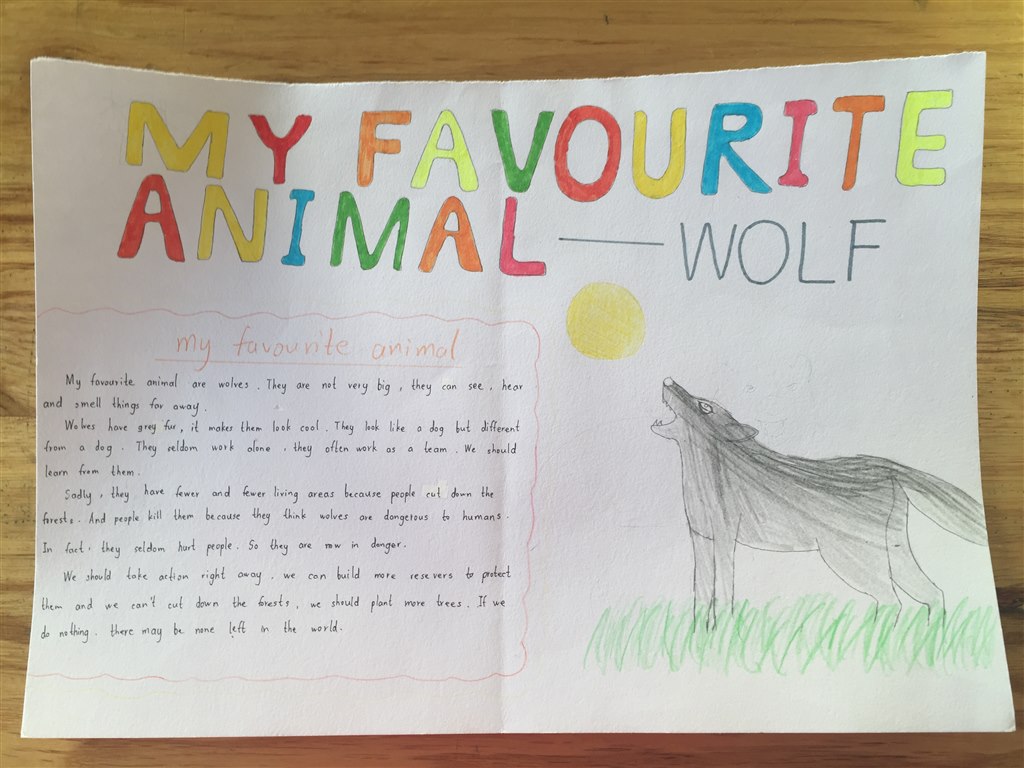 MY FAVOURITE
ANIMAL — WOLF
my favourite animal
My favourite animal are wolves. They are not very big, they can see, hear
and smell things far away.
Wolves have grey fur, it makes them look cool. They look like a dog but different
from a dog. They seldom work alone, they often work as a team. We should
learn from them.
Sadly, they have fewer and fewer living areas because people cut down the
forests. And people kill them because they think wolves are dangerous to humans.
In fact, they seldom hurt people. So they are now in danger.
We should take action right away. we can build more resevers to protect
them and we can't cut down the forests, we should plant more trees. If we
do nothing. there may be none left in the world.